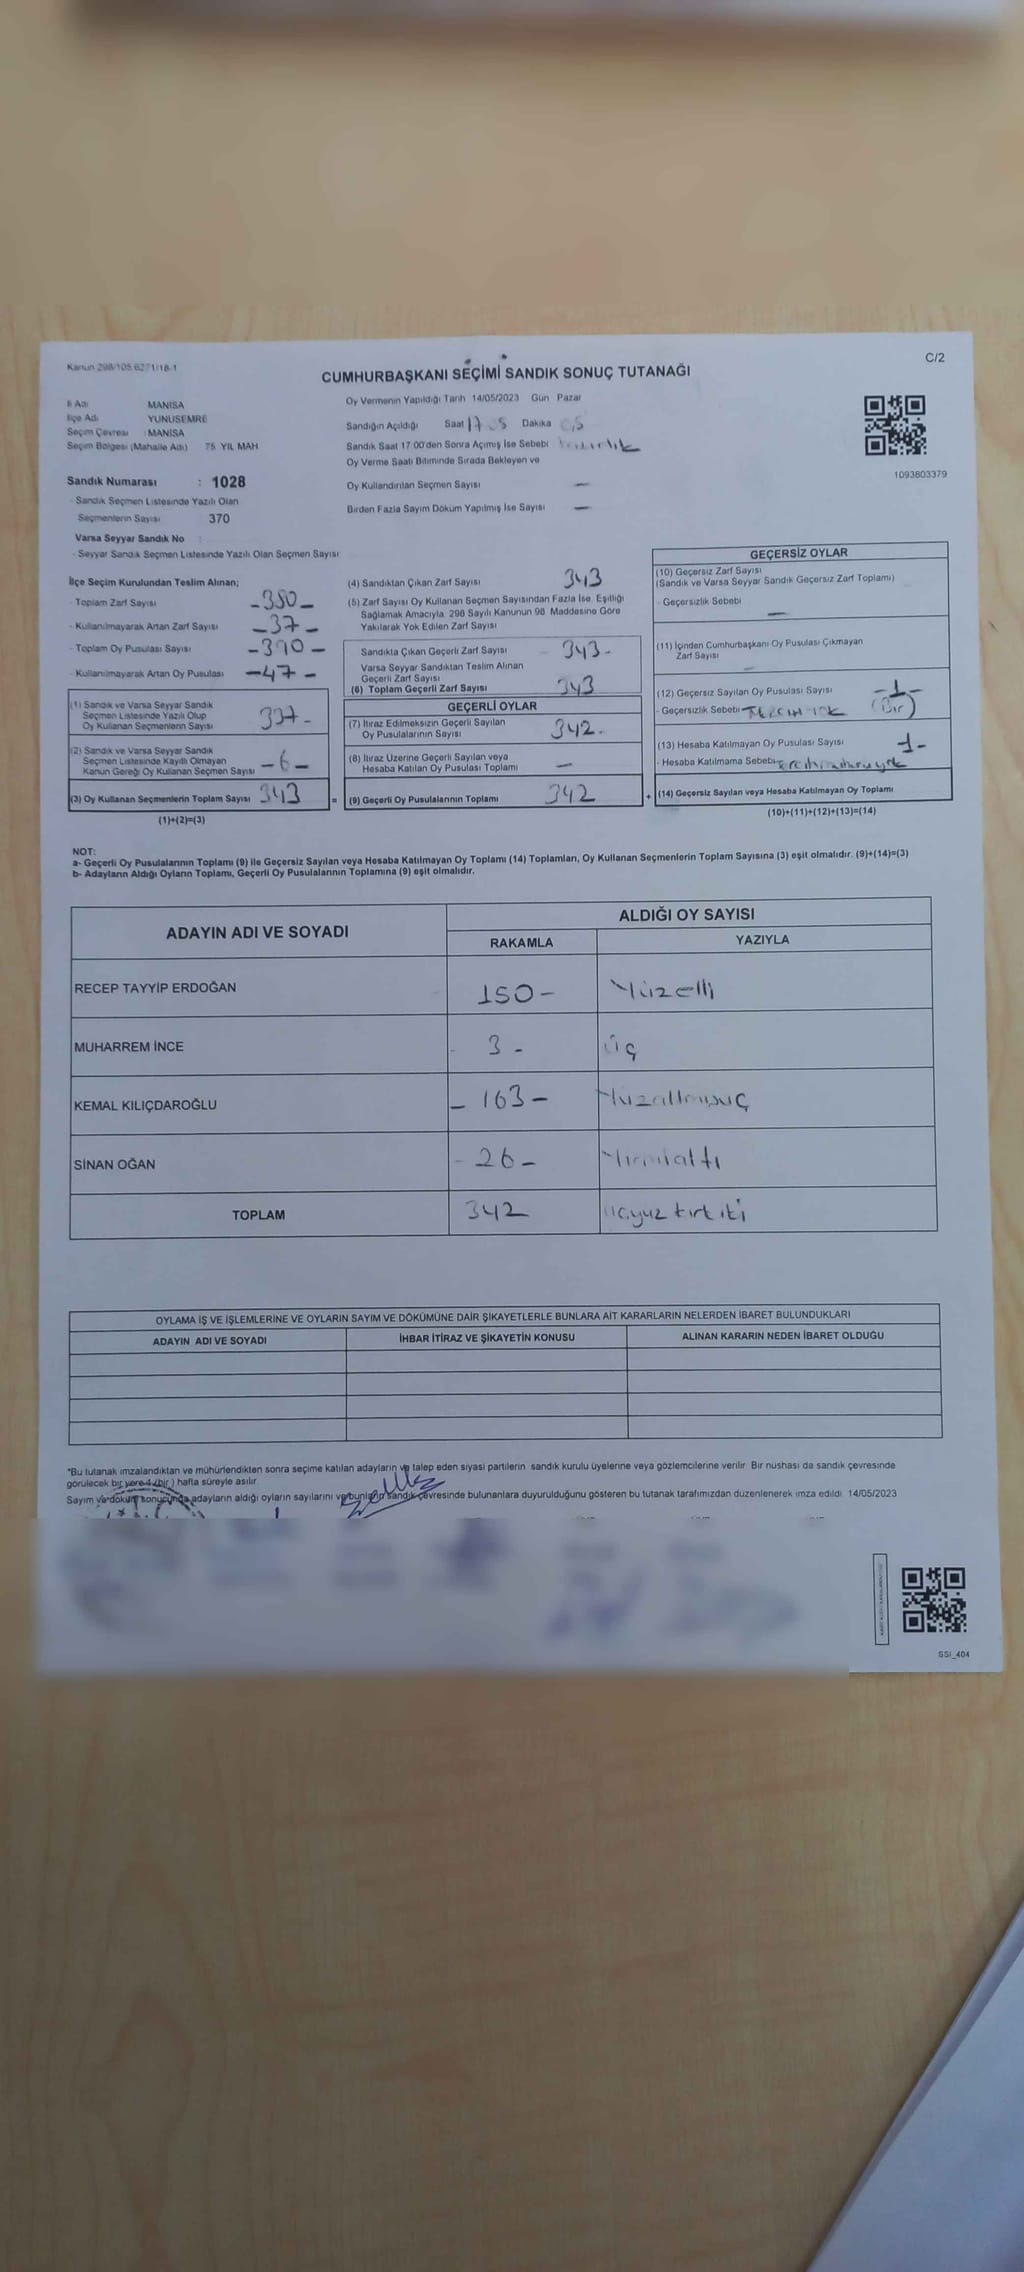 Kanun 298/105,6271/18-1
C/2
CUMHURBAŞKANI SEÇİMİ SANDIK SONUÇ TUTANAĞI
İl Adı : MANİSA
İlçe Adı : YUNUSEMRE
Seçim Çevresi : MANİSA
Seçim Bölgesi (Mahalle Adı) 75. YIL MAH.
Oy Vermenin Yapıldığı Tarih 14/05/2023 Gün Pazar
Sandığın Açıldığı Saat 17 Dakika
Sandık Saat 17.00'den Sonra Açılmış İse Sebebi
Oy Verme Saati Bitiminde Sırada Bekleyen ve
Oy Kullandırılan Seçmen Sayısı —
Birden Fazla Sayım Döküm Yapılmış İse Sayısı —
1093803379
Sandık Numarası : 1028
- Sandık Seçmen Listesinde Yazılı Olan
Seçmenlerin Sayısı 370
Varsa Seyyar Sandık No :
- Seyyar Sandık Seçmen Listesinde Yazılı Olan Seçmen Sayısı
İlçe Seçim Kurulundan Teslim Alınan;
- Toplam Zarf Sayısı -380-
- Kullanılmayarak Artan Zarf Sayısı -37-
- Toplam Oy Pusulası Sayısı -390-
- Kullanılmayarak Artan Oy Pusulası -47-
(1) Sandık ve Varsa Seyyar Sandık
Seçmen Listesinde Yazılı Olup
Oy Kullanan Seçmenlerin Sayısı 337-
(2) Sandık ve Varsa Seyyar Sandık
Seçmen Listesinde Kayıtlı Olmayan
Kanun Gereği Oy Kullanan Seçmen Sayısı -6-
(3) Oy Kullanan Seçmenlerin Toplam Sayısı 343 =
(1)+(2)=(3)
(4) Sandıktan Çıkan Zarf Sayısı 343
(5) Zarf Sayısı Oy Kullanan Seçmen Sayısından Fazla İse, Eşitliği
Sağlamak Amacıyla, 298 Sayılı Kanunun 98. Maddesine Göre
Yakılarak Yok Edilen Zarf Sayısı
Sandıkta Çıkan Geçerli Zarf Sayısı 343-
Varsa Seyyar Sandıktan Teslim Alınan
Geçerli Zarf Sayısı
(6) Toplam Geçerli Zarf Sayısı 343
GEÇERLİ OYLAR
(7) İtiraz Edilmeksizin Geçerli Sayılan
Oy Pusulalarının Sayısı 342-
(8) İtiraz Üzerine Geçerli Sayılan veya
Hesaba Katılan Oy Pusulası Toplamı —
(9) Geçerli Oy Pusulalarının Toplamı 342 +
GEÇERSİZ OYLAR
(10) Geçersiz Zarf Sayısı
(Sandık ve Varsa Seyyar Sandık Geçersiz Zarf Toplamı)
- Geçersizlik Sebebi —
(11) İçinden Cumhurbaşkanı Oy Pusulası Çıkmayan
Zarf Sayısı —
(12) Geçersiz Sayılan Oy Pusulası Sayısı -1-
- Geçersizlik Sebebi TERCİH YOK (Bir)
(13) Hesaba Katılmayan Oy Pusulası Sayısı 1-
- Hesaba Katılmama Sebebi
(14) Geçersiz Sayılan veya Hesaba Katılmayan Oy Toplamı
(10)+(11)+(12)+(13)=(14)
NOT:
a- Geçerli Oy Pusulalarının Toplamı (9) ile Geçersiz Sayılan veya Hesaba Katılmayan Oy Toplamı (14) Toplamları, Oy Kullanan Seçmenlerin Toplam Sayısına (3) eşit olmalıdır. (9)+(14)=(3)
b- Adayların Aldığı Oyların Toplamı, Geçerli Oy Pusulalarının Toplamına (9) eşit olmalıdır.
ADAYIN ADI VE SOYADI
ALDIĞI OY SAYISI
RAKAMLA YAZIYLA
RECEP TAYYİP ERDOĞAN 150- Yüzelli
MUHARREM İNCE 3- üç
KEMAL KILIÇDAROĞLU -163- Yüzaltmışüç
SİNAN OĞAN -26- Yirmialtı
TOPLAM 342 üçyüz kırk iki
OYLAMA İŞ VE İŞLEMLERİNE VE OYLARIN SAYIM VE DÖKÜMÜNE DAİR ŞİKAYETLERLE BUNLARA AİT KARARLARIN NELERDEN İBARET BULUNDUKLARI
ADAYIN ADI VE SOYADI İHBAR İTİRAZ VE ŞİKAYETİN KONUSU ALINAN KARARIN NEDEN İBARET OLDUĞU
*Bu tutanak imzalandıktan ve mühürlendikten sonra seçime katılan adayların ve talep eden siyasi partilerin sandık kurulu üyelerine veya gözlemcilerine verilir. Bir nüshası da sandık çevresinde
görülecek bir yere 1 (bir ) hafta süreyle asılır.
Sayım ve döküm sonucunda adayların aldığı oyların sayılarını ve bunların sandık çevresinde bulunanlara duyurulduğunu gösteren bu tutanak tarafımızdan düzenlenerek imza edildi. 14/05/2023
SSI_404